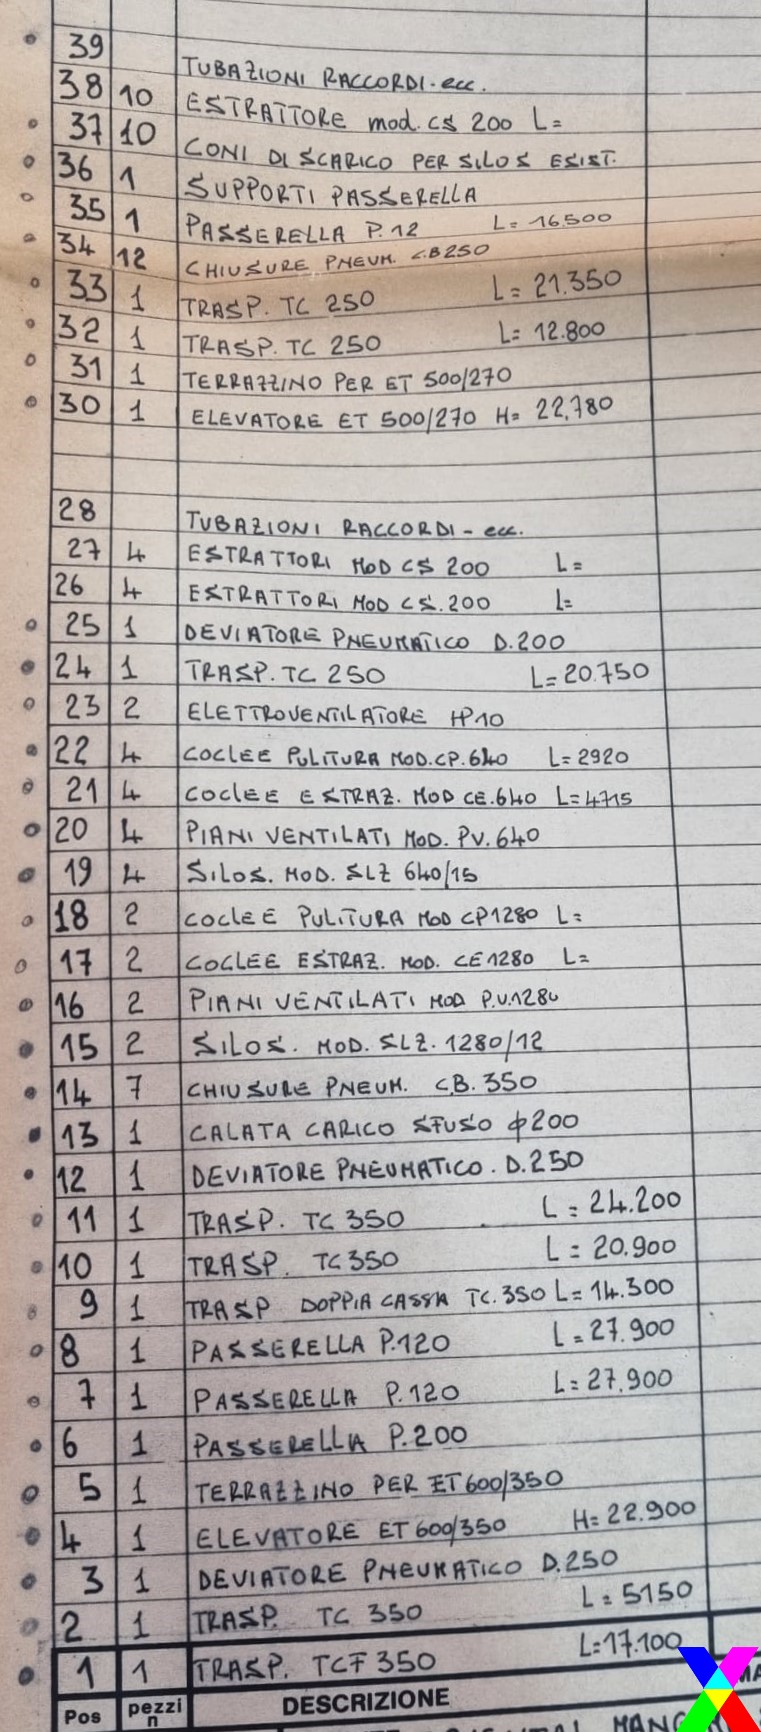 39 TUBAZIONI RACCORDI - ecc.
38 10 ESTRATTORE mod. CS 200 L=
37 10 CONI DI SCARICO PER SILOS ESIST.
36 1 SUPPORTI PASSERELLA
35 1 PASSERELLA P.12 L= 16.500
34 12 CHIUSURE PNEUM. C.B 250
33 1 TRASP. TC 250 L= 21.350
32 1 TRASP. TC 250 L= 12.800
31 1 TERRAZZINO PER ET 500/270
30 1 ELEVATORE ET 500/270 H= 22.780
28 TUBAZIONI RACCORDI - ecc.
27 4 ESTRATTORI MOD CS 200 L=
26 4 ESTRATTORI MOD CS. 200 L=
25 1 DEVIATORE PNEUMATICO D.200
24 1 TRASP. TC 250 L= 20.750
23 2 ELETTROVENTILATORE HP 10
22 4 COCLEE PULITURA MOD. CP. 640 L= 2920
21 4 COCLEE ESTRAZ. MOD CE. 640 L= 4715
20 4 PIANI VENTILATI MOD. PV. 640
19 4 SILOS. MOD. SLZ 640/15
18 2 COCLEE PULITURA MOD CP1280 L=
17 2 COCLEE ESTRAZ. MOD. CE1280 L=
16 2 PIANI VENTILATI MOD P.V.1280
15 2 SILOS. MOD. SLZ. 1280/12
14 7 CHIUSURE PNEUM. C.B. 350
13 1 CALATA CARICO SFUSO ϕ200
12 1 DEVIATORE PNEUMATICO. D.250
11 1 TRASP. TC 350 L= 24.200
10 1 TRASP. TC 350 L= 20.900
9 1 TRASP DOPPIA CASSA TC. 350 L= 14.300
8 1 PASSERELLA P.120 L= 27.900
7 1 PASSERELLA P.120 L= 27.900
6 1 PASSERELLA P.200
5 1 TERRAZZINO PER ET 600/350
4 1 ELEVATORE ET 600/350 H= 22.900
3 1 DEVIATORE PNEUMATICO D.250
2 1 TRASP. TC 350 L= 5150
1 1 TRASP. TCF 350 L= 17.100
Pos pezzi n DESCRIZIONE